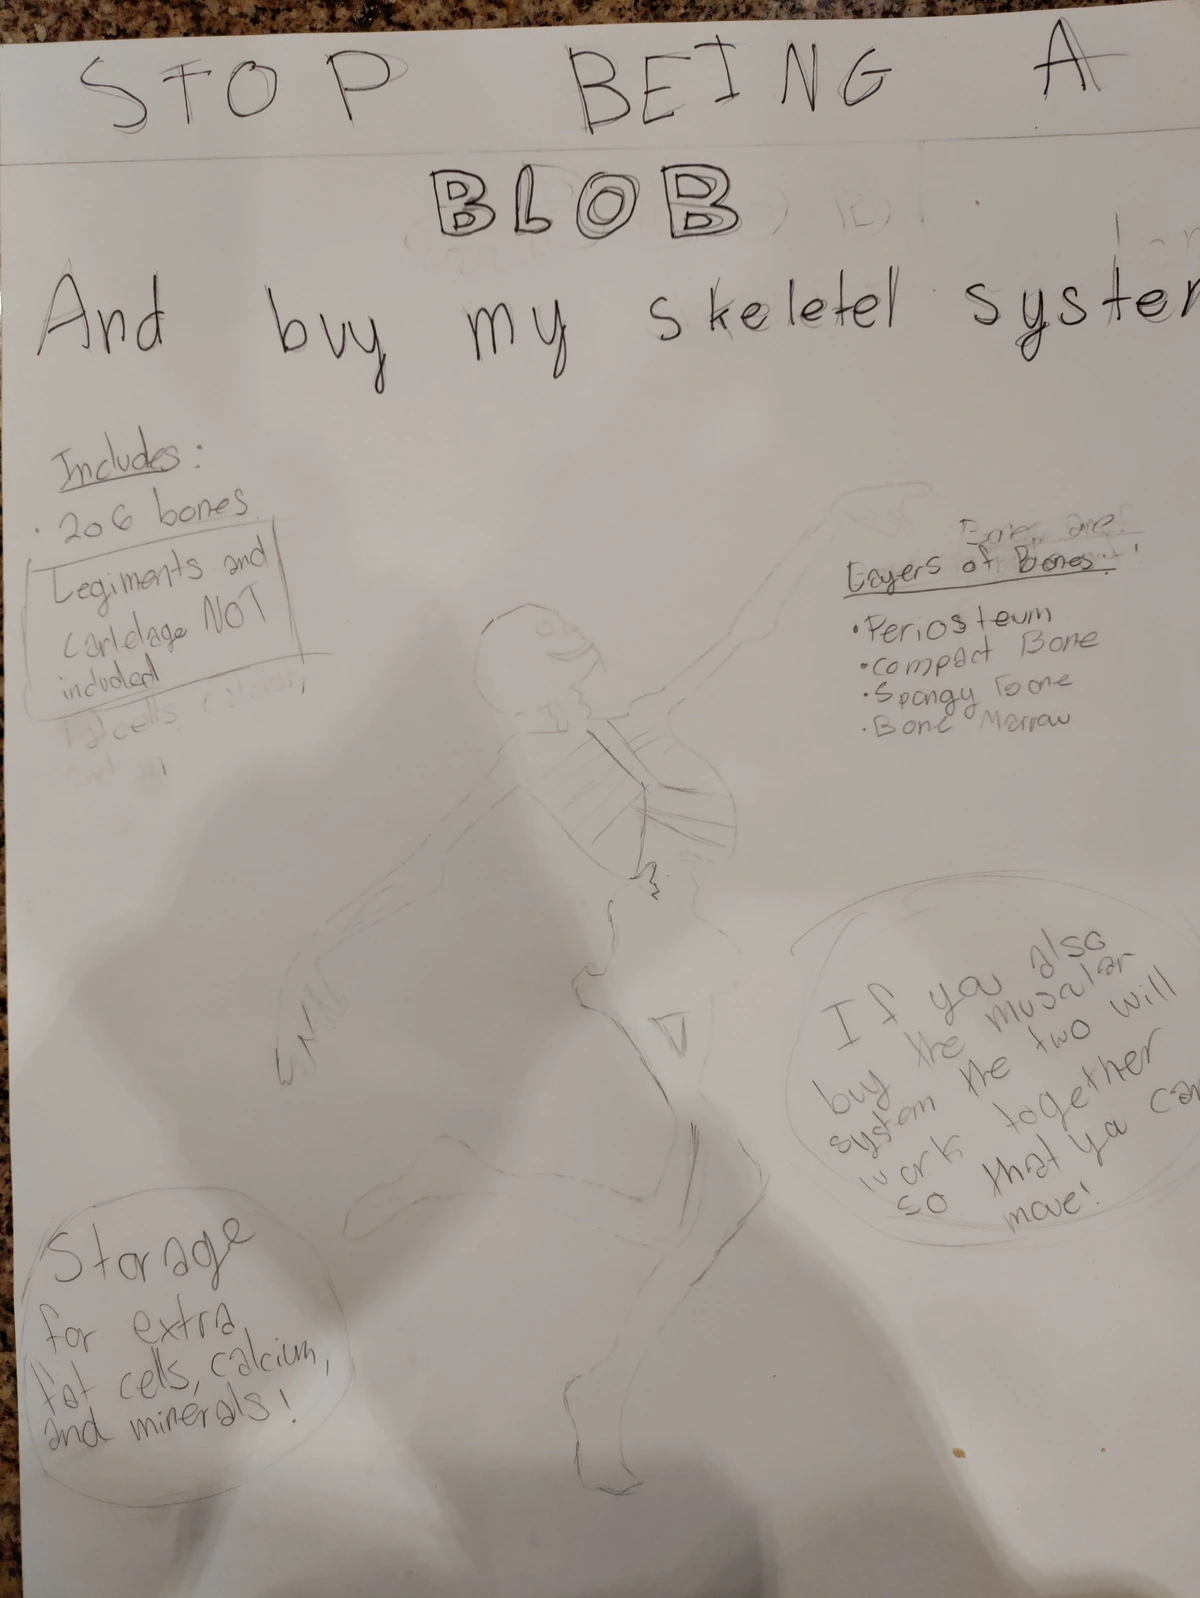 STOP BEING A
BLOB
And buy my skeletel syster
Includes:
· 206 bones
Legiments and
cartelage NOT
included
fat cells
and
Bones are
Layers of Bones:
• Periosteum
• compact Bone
• Spongy Bone
• Bone Marrow
If you also
buy the muscular
system the two will
work together
so that you can
move!
Storage
for extra
fat cells, calcium,
and minerals!